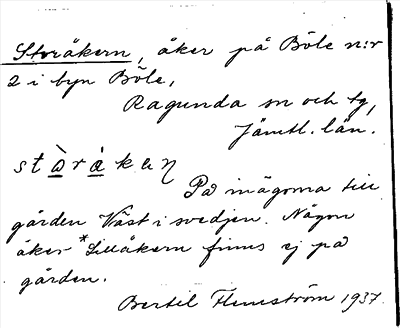 Storåkern, åker på Böle n:r
2 i byn Böle,
Ragunda sn och tg,
Jämtl. län.
stὰrἁkeɳ
På inägorna till
gården Väst i svedjen. Någon
åker *Lillåkern finns ej på
gården.
Bertil Flemström 1937.